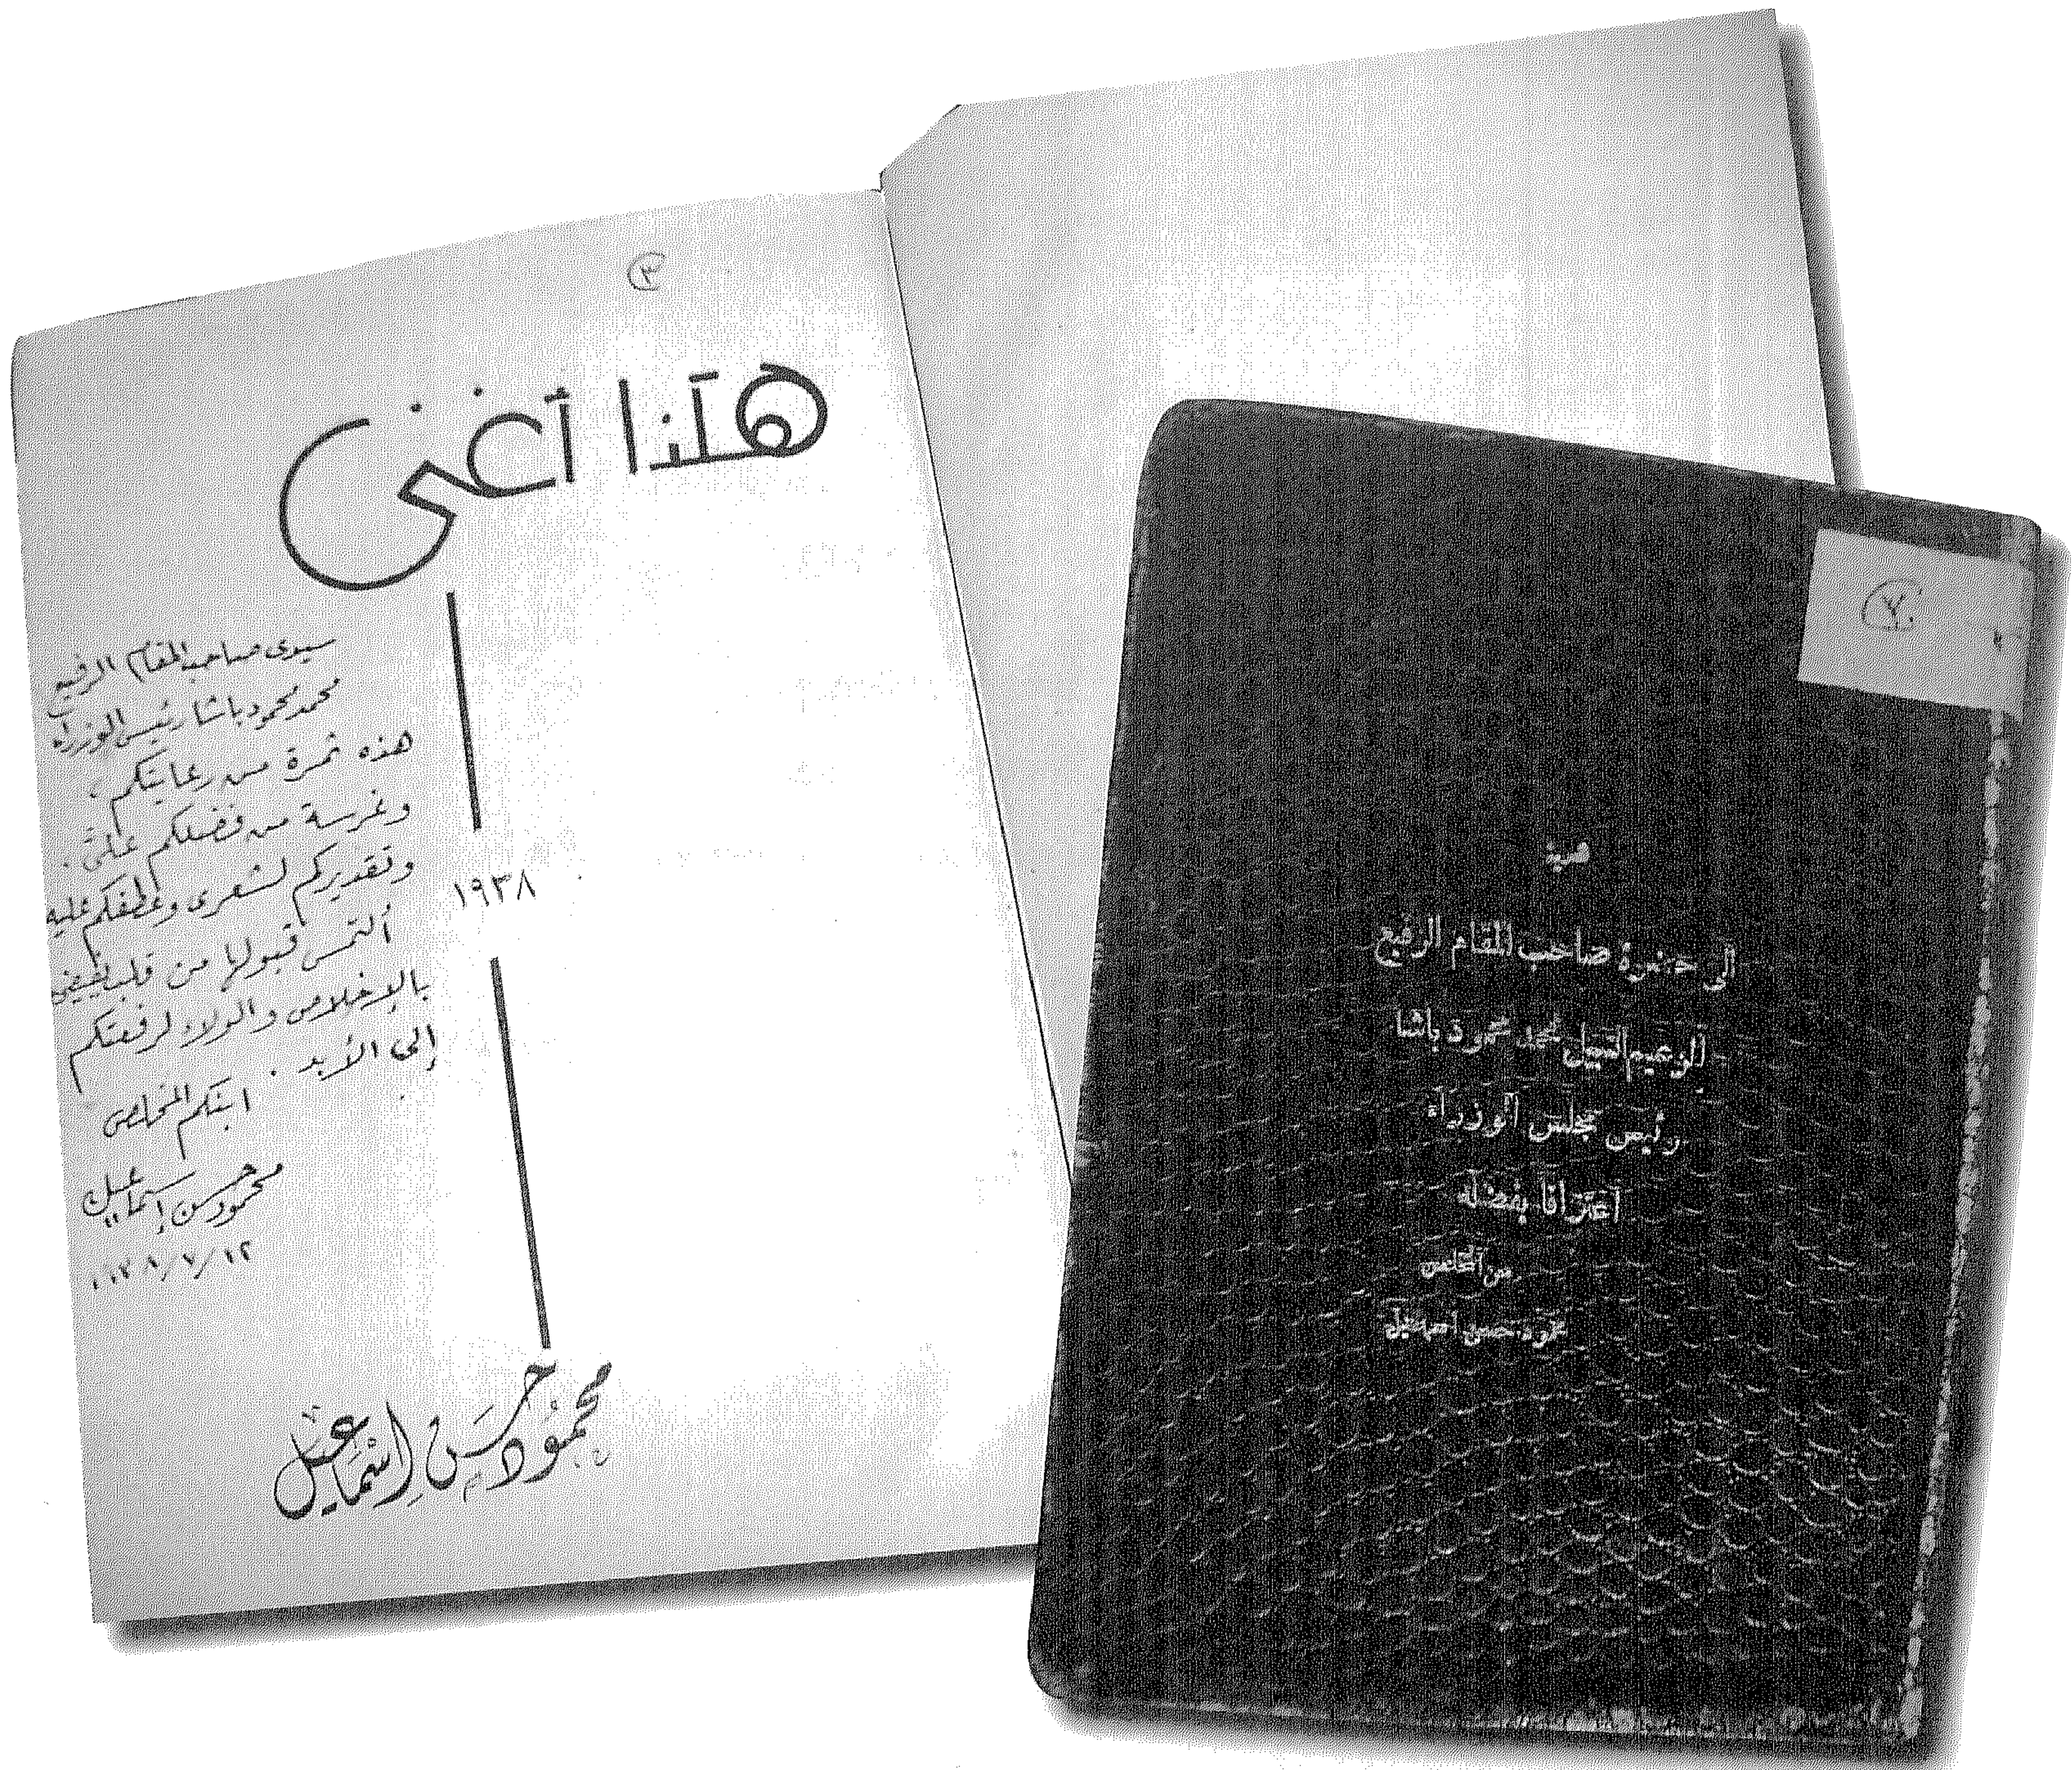 ٣
هكذا أغنى
سيدى صاحب المقام الرفيع
محمد محمود باشا رئيس الوزراء
هذه ثمرة من رعايتكم .
وغرسة من فضلكم علىّ .
وتقديركم لشعرى وعطفكم عليه
ألتمس قبولها من قلب يفيض
بالإخلاص والولاء لرفعتكم
إلى الأبد .
ابنكم المخلص
محمود حسن إسماعيل
١٩٣٨
محمود حسن إسماعيل
٧
هدية
إلى حضرة صاحب المقام الرفيع
الزعيم النبيل محمد محمود باشا
رئيس مجلس الوزراء
اعترافا بفضله
من المخلص
محمود حسن اسماعيل